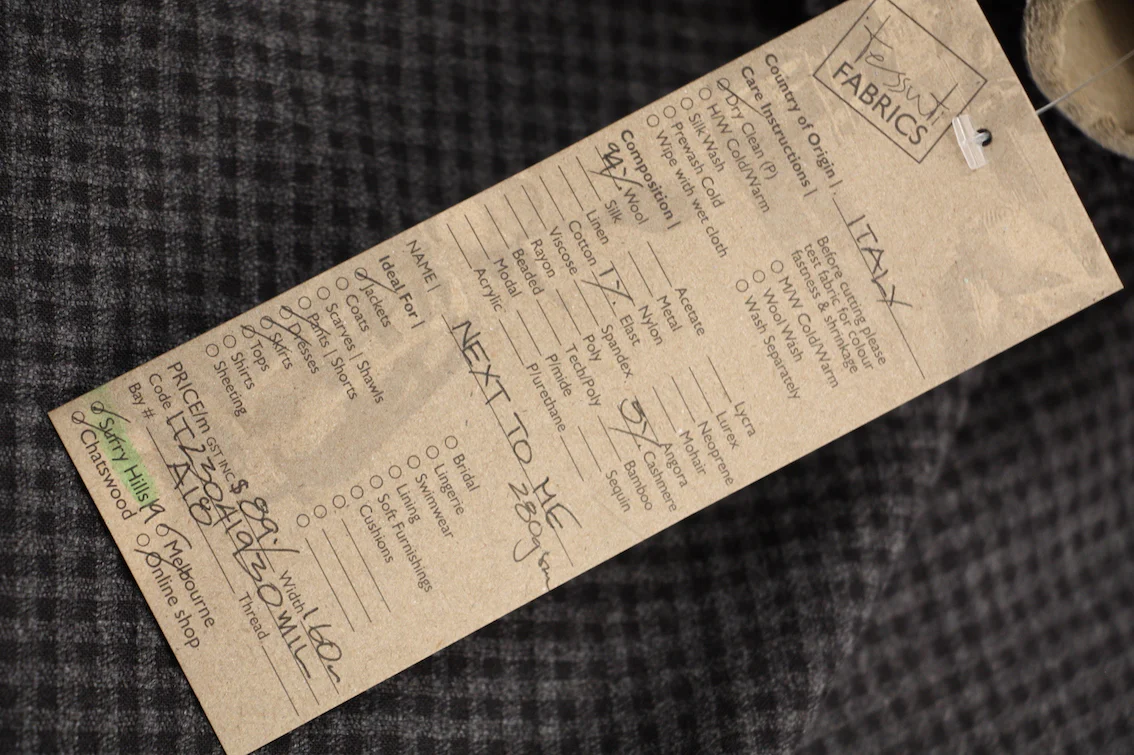 Tessuti
FABRICS
Country of Origin | ITALY
Care Instructions |
Before cutting please
test fabric for colour
fastness & shrinkage
Dry Clean (P)
H/W Cold/Warm
Silk Wash
Prewash Cold
Wipe with wet cloth
M/W Cold/Warm
Wool Wash
Wash Separately
Composition |
94% Wool
Silk
Linen
Cotton
Viscose
Rayon
Beaded
Modal
Acrylic
Acetate
Metal
Nylon
1% Elast
Spandex
Poly
Tech/Poly
P/mide
P/urethane
Lycra
Lurex
Neoprene
Mohair
Angora
5% Cashmere
Bamboo
Sequin
NAME | NEXT TO ME
280gsm
Ideal For |
Jackets
Coats | Shawls
Scarves
Pants | Shorts
Dresses
Skirts
Tops
Shirts
Sheeting
Bridal
Lingerie
Swimwear
Lining
Soft Furnishings
Cushions
PRICE/m GST INC $ 89./ Width 160
Code IT2304H9/30MIL
Bay # A18 Thread
Surry Hills
Melbourne
Chatswood
Online shop